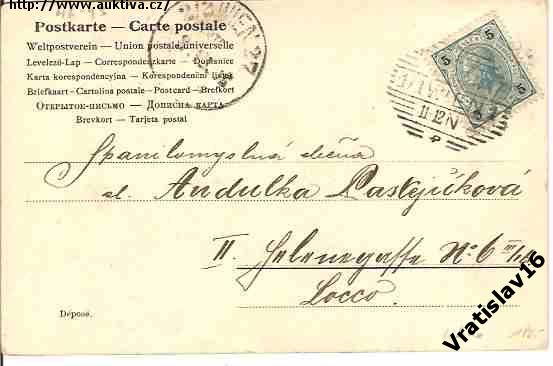 http://www.auktiva.cz/
Postkarte — Carte postale
Weltpostverein — Union postale universelle
Levelező-Lap — Correspondenzkarte — Dopisnice
Karta korespondencyjna — Korespondenční lístek
Briefkaart — Cartolina postale — Postcard — Brefkort
Открытое-письмо — Дописна карта
Brevkort — Tarjeta postal
WIEN 27
5 5
WIEN
11-12N
5 5
Spanilomyslná slečna
sl. Andulka Pastějříková
II. Helenegasse No. 6
Locco.
Déposé.
Vratislav16